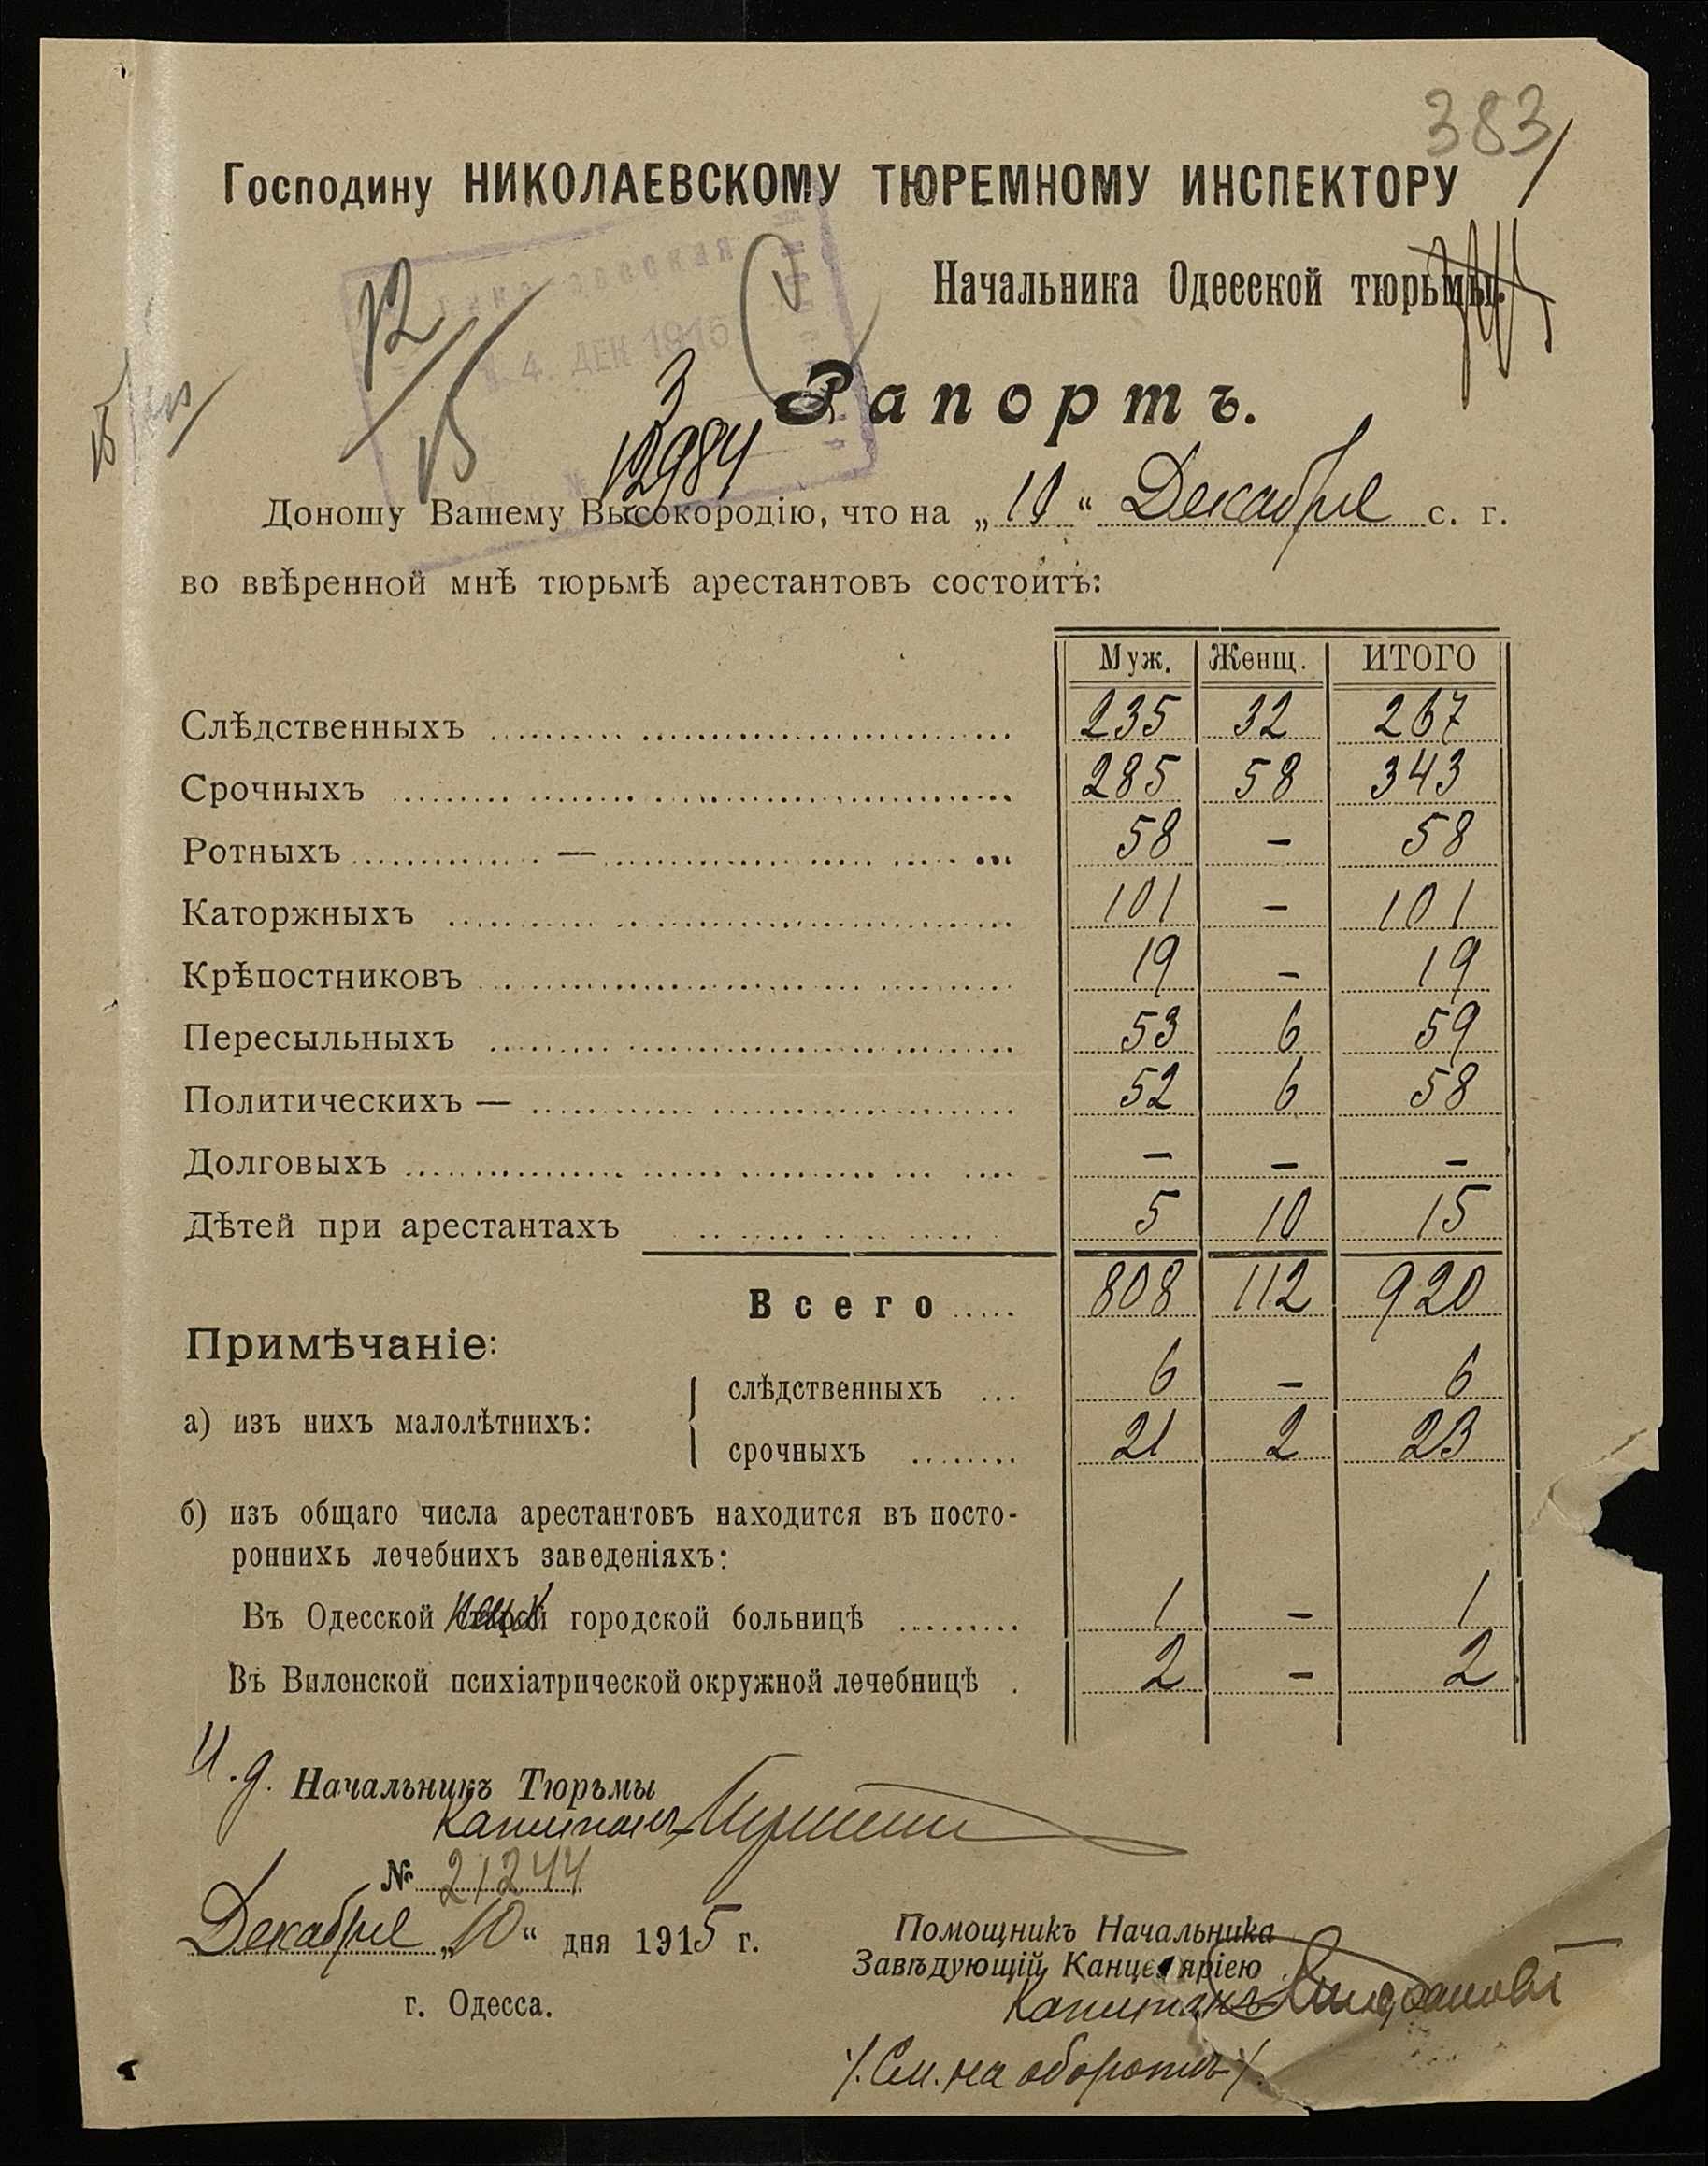 383
Господину НИКОЛАЕВСКОМУ ТЮРЕМНОМУ ИНСПЕКТОРУ
Начальника Одесской тюрьмы.
12
15
4. ДЕК 1915
Рапортъ.
3
12984
Доношу Вашему Высокородію, что на „ 11 “ Декабря с. г.
во ввѣренной мнѣ тюрьмѣ арестантовъ состоитъ:
Муж. Женщ. ИТОГО
Слѣдственныхъ 235 32 267
Срочныхъ 285 58 343
Ротныхъ — 58 - 58
Каторжныхъ 101 - 101
Крѣпостниковъ 19 - 19
Пересыльныхъ 53 6 59
Политическихъ — 52 6 58
Долговыхъ - - -
Дѣтей при арестантахъ 5 10 15
Всего 808 112 920
Примѣчаніе:
слѣдственныхъ 6 - 6
а) изъ нихъ малолѣтнихъ:
срочныхъ 21 2 23
б) изъ общаго числа арестантовъ находится въ посто-
роннихъ лечебнихъ заведеніяхъ:
Въ Одесской городской больницѣ 1 - 1
Въ Виленской психіатрической окружной лечебницѣ 2 - 2
И. д. Начальникъ Тюрьмы
Капитанъ
№ 21244
Декабря „10“ дня 1915 г.
г. Одесса.
Помощникъ Начальника
Завѣдующій Канцеляріею
Капитанъ
/. См. на оборотѣ /.